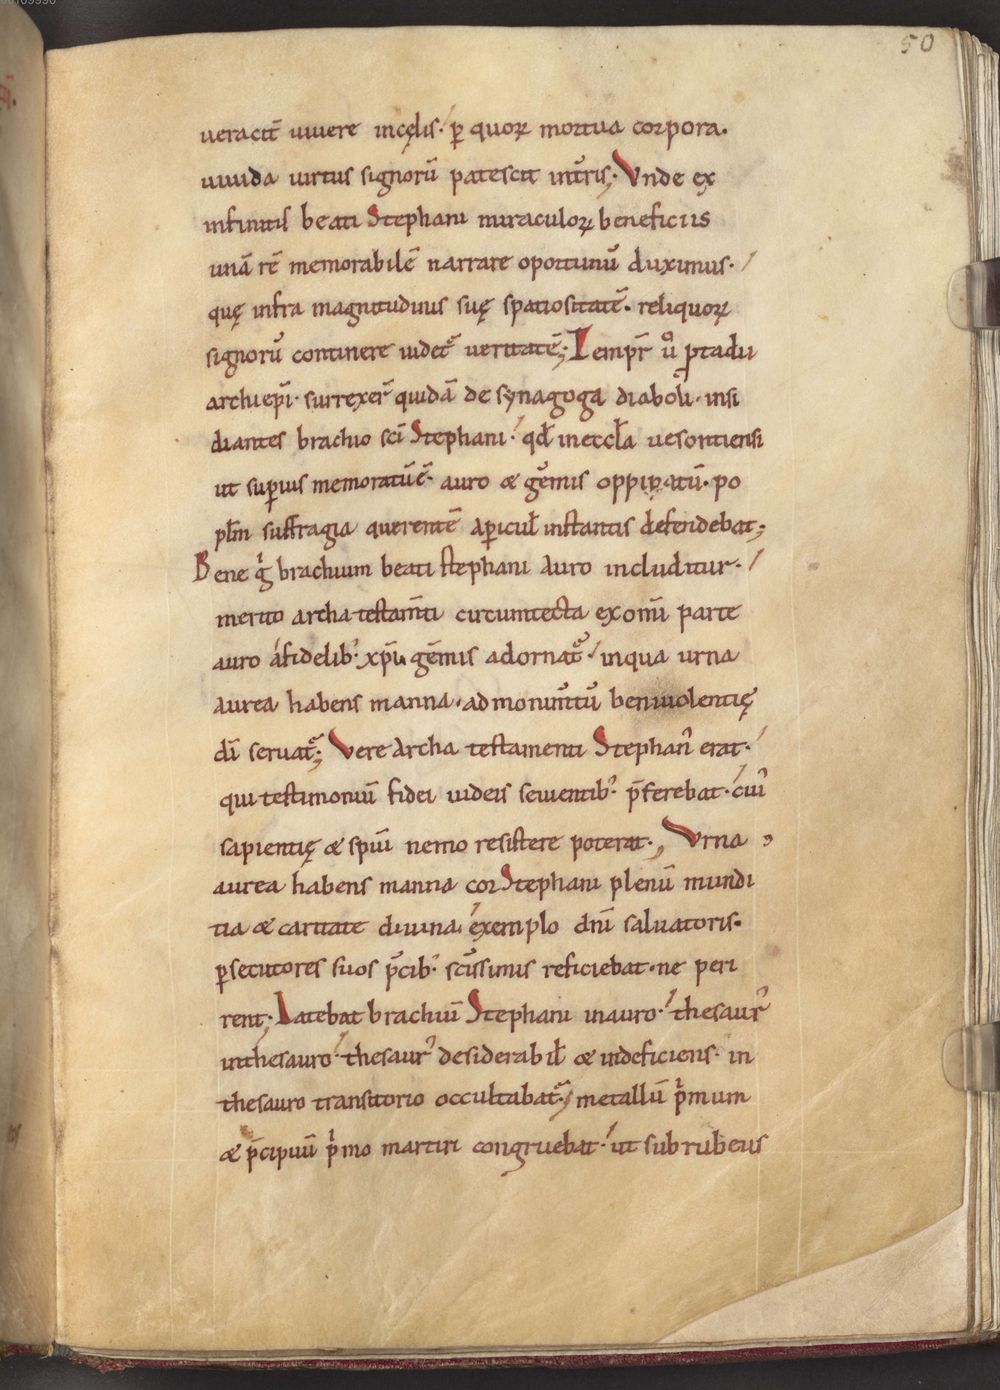 50
ueracit̄ uiuere incęlis· ꝑ quoꝝ mortua corpora.
uiuida uirtus signorū patescit int̄ris; Vnde ex
infinitis beati Stephani miraculoꝝ beneficiis
unā rē memorabilē narrare oportunū duximus·
quę infra magnitudinis suę spatiositatē· reliquoꝝ
signorū continere uidet᷑ ueritatē; Temp̄r ꝑtadii
archiep̄i· surrexer̄ quidā de synagoga diaboli· insi
diantes brachio sc̄i Stephani· qđ inęccła uesontiensi
ut suꝑius memoratū ē· auro & gēmis oppiꝑatū· po
płm suffragia querentē apericuł instantis defendebat;
Bene g̊ brachium beati stephani auro includitur·
merito archa testam̄ti circumtecta exom̄i parte
auro afidelib᾽ xp̄i gēmis adornat᷑· inqua urna
aurea habens manna· admonum̄tū beniuolentię
dī seruat᷑; Vere archa testamenti Stephan᾽ erat·
qui testimoniū fidei iudeis seuientib᾽ p̄ferebat· cui᾽
sapientię & spiūi nemo resistere poterat·, Vrna
aurea habens manna cor Stephani plenū mundi
tia & caritate diuina, exemplo dn̄i saluatoris·
ꝑsecutores suos p̄cib᾽ sc̄issimis reficiebat· ne peri
rent; Latebat brachiū Stephani inauro· thesaur᾽
inthesauro· thesaur᾽ desiderabił & indeficiens· in
thesauro transitorio occultabat᷑; metallū pͥmum
& p̄cipuū pͥmo martiri congruebat· ut subrubeus